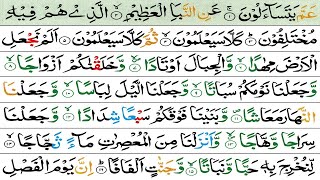 عَمَّ يَتَسَآءَلُوۡنَ‌ۚ‏ ﴿۱﴾ عَنِ النَّبَاِ الۡعَظِيۡمِۙ‏ ﴿۲﴾ الَّذِىۡ هُمۡ فِيۡهِ
مُخۡتَلِفُوۡنَؕ‏ ﴿۳﴾ كَلَّا سَيَعۡلَمُوۡنَۙ‏ ﴿۴﴾ ثُمَّ كَلَّا سَيَعۡلَمُوۡنَ‏ ﴿۵﴾ اَلَمۡ نَجۡعَلِ
الۡاَرۡضَ مِهٰدًا ۙ‏ ﴿۶﴾ وَّالۡجِبَالَ اَوۡتَادًا ۙ‏ ﴿۷﴾ وَّخَلَقۡنٰكُمۡ اَزۡوَاجًا ۙ‏ ﴿۸﴾
وَّجَعَلۡنَا نَوۡمَكُمۡ سُبَاتًا ۙ‏ ﴿۹﴾ وَّجَعَلۡنَا الَّيۡلَ لِبَاسًا ۙ‏ ﴿۱۰﴾ وَّجَعَلۡنَا
النَّهَارَ مَعَاشًا ۪‏ ﴿۱۱﴾ وَبَنَيۡنَا فَوۡقَكُمۡ سَبۡعًا شِدَادًا ۙ‏ ﴿۱۲﴾ وَّجَعَلۡنَا
سِرَاجًا وَّهَّاجًا ۙ‏ ﴿۱۳﴾ وَّاَنۡزَلۡنَا مِنَ الۡمُعۡصِرٰتِ مَآءً ثَجَّاجًا ۙ‏ ﴿۱۴﴾
لِّنُخۡرِجَ بِهٖ حَبًّا وَّنَبَاتًا ۙ‏ ﴿۱۵﴾ وَّجَنّٰتٍ اَلۡفَافًا ؕ‏ ﴿۱۶﴾ اِنَّ يَوۡمَ الۡفَصۡلِ